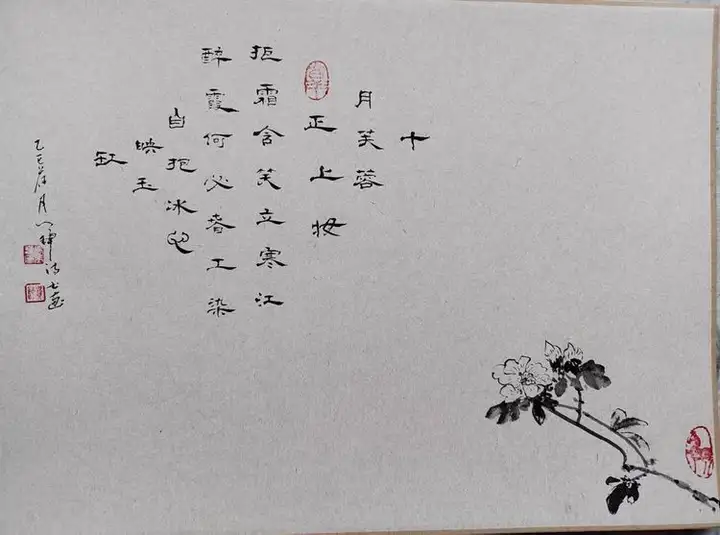 十
月芙蓉
正上妆
拒霜含笑立寒江
醉霞何必春工染
自把冰心
映玉
缸
乙巳 月 禅 书画